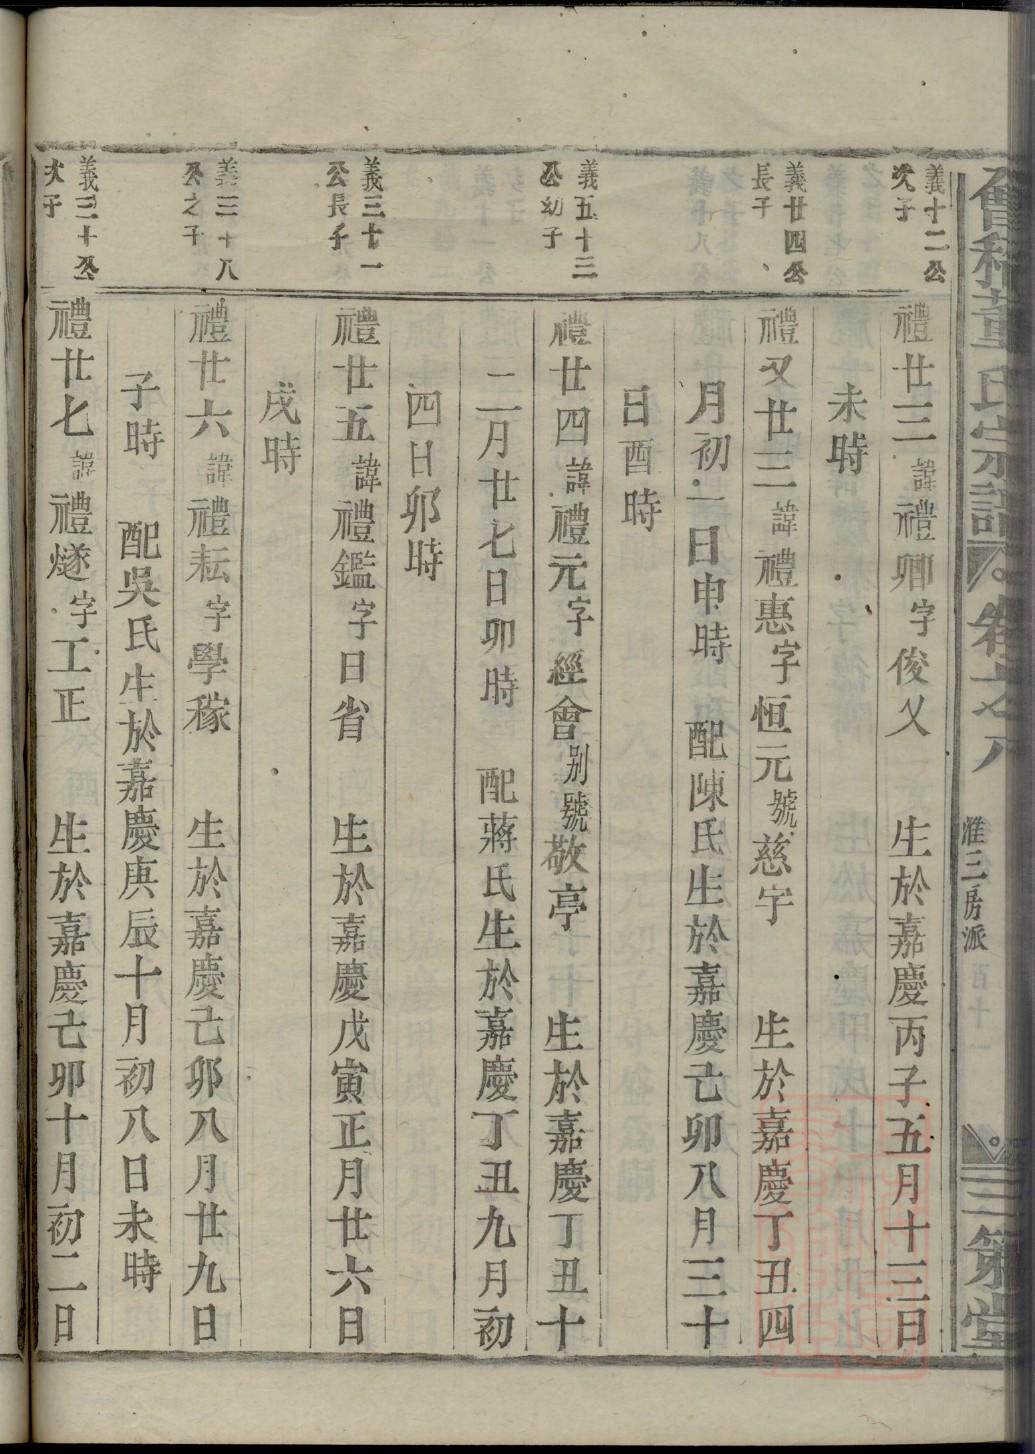 會稽董氏宗譜 卷之八
淮三房派 百十一
三策堂
義十二公
次子
禮廿三諱禮卿字俊乂 生於嘉慶丙子五月十三日
未時
義廿四公
長子
禮又廿三諱禮惠字恒元號慈宇 生於嘉慶丁丑四
月初一日申時 配陳氏生於嘉慶己卯八月三十
日酉時
義五十三
公幼子
禮廿四諱禮元字經會别號敬亭 生於嘉慶丁丑十
二月廿七日卯時 配蔣氏生於嘉慶丁丑九月初
四日卯時
義三十一
公長子
禮廿五諱禮鑑字日省 生於嘉慶戊寅正月廿六日
戌時
義三十八
公之子
禮廿六諱禮耘字學稼 生於嘉慶己卯八月廿九日
子時 配吳氏生於嘉慶庚辰十月初八日未時
義三十公
次子
禮廿七諱禮燧字工正 生於嘉慶己卯十月初二日